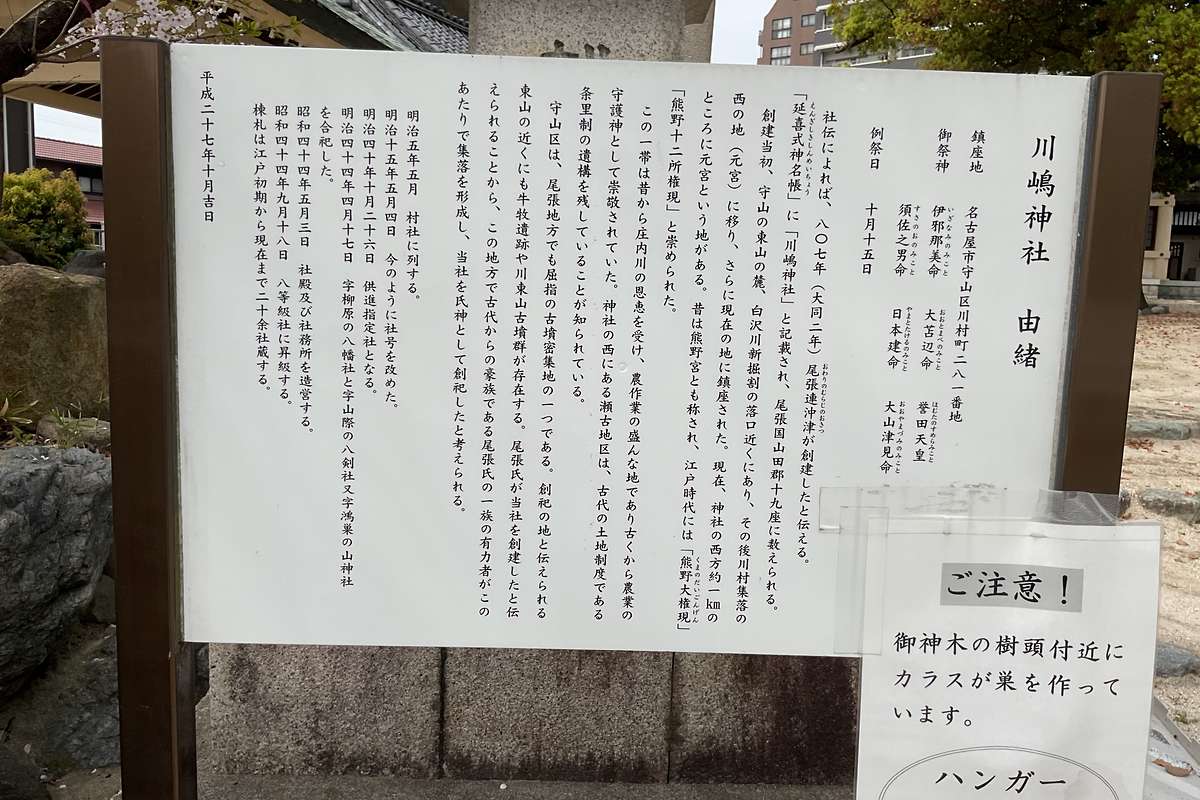 川嶋神社 由緒
鎮座地 名古屋市守山区川村町二八一番地
御祭神 伊邪那美命 大苫辺命 誉田天皇
いざなみのみこと おおとまべのみこと ほむたのすめらみこと
須佐之男命 日本建命 大山津見命
すさのおのみこと やまとたけるのみこと おおやまづみのみこと
例祭日 十月十五日
社伝によれば、八〇七年(大同二年)尾張連沖津が創建したと伝える。
おわりのむらじのおきつ
「延喜式神名帳」に「川嶋神社」と記載され、尾張国山田郡十九座に数えられる。
えんぎしきしんめいちょう
創建当初、守山の東山の麓、白沢川新掘割の落口近くにあり、その後川村集落の
西の地(元宮)に移り、さらに現在の地に鎮座された。現在、神社の西方約一㎞の
ところに元宮という地がある。昔は熊野宮とも称され、江戸時代には「熊野大権現」
くまのだいごんげん
「熊野十二所権現」と崇められた。
この一帯は昔から庄内川の恩恵を受け、農作業の盛んな地であり古くから農業の
守護神として崇敬されていた。神社の西にある瀬古地区は、古代の土地制度である
条里制の遺構を残していることが知られている。
守山区は、尾張地方でも屈指の古墳密集地の一つである。創祀の地と伝えられる
東山の近くにも牛牧遺跡や川東山古墳群が存在する。尾張氏が当社を創建したと伝
えられることから、この地方で古代からの豪族である尾張氏の一族の有力者がこの
あたりで集落を形成し、当社を氏神として創祀したと考えられる。
明治五年五月 村社に列する。
明治十五年五月四日 今のように社号を改めた。
明治四十年十月二十六日 供進指定社となる。
明治四十四年四月十七日 字柳原の八幡社と字山際の八剣社又字鴻巣の山神社
を合祀した。
昭和四十四年五月三日 社殿及び社務所を造営する。
昭和四十四年九月十八日 八等級社に昇級する。
棟札は江戸初期から現在まで二十余社蔵する。
平成二十七年十月吉日
ご注意！
御神木の樹頭付近に
カラスが巣を作って
います。
ハンガー